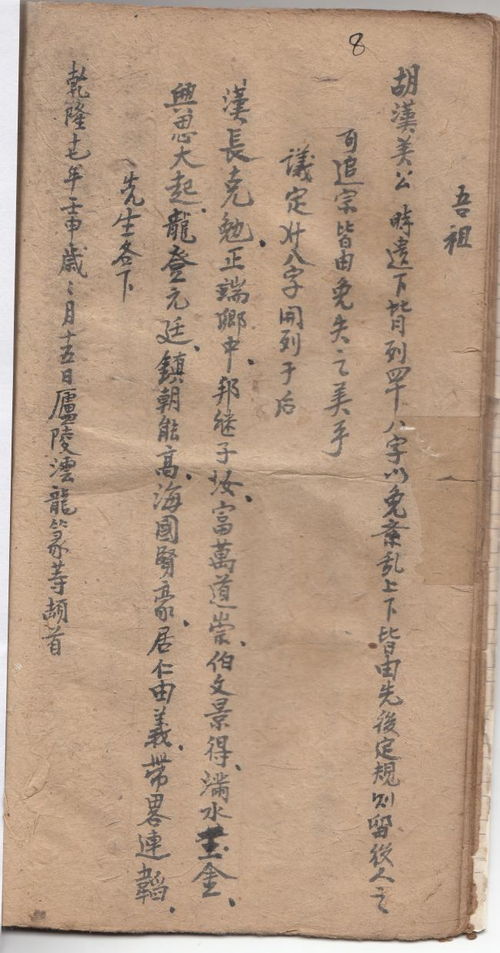 8
吾祖
胡漢美公時遺下皆列四十八字以免紊乱上下皆由先後定規则留後人之
可追宗皆由免失之美乎
議定卅八字開列于后
漢長克勉、正端鄉中、邦继子孜、富萬道崇、伯文景得、滿水玉金、
興思大起、龍登元廷、鎮朝能高、海國賢豪、居仁由義、帶畧連韜、
先生各下
乾隆十七年壬申歲二月十五日廬陵澐龍篆等頡首